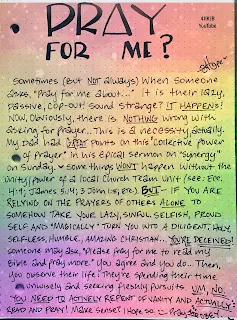 PRAY
#DBJB
YouTube
FOR ME?
-Hope-
Sometimes (but NOT always) when someone
asks, "Pray for me about..." It is their lazy,
passive, cop-out sound strange? IT HAPPENS!
NOW, Obviously, there is NOTHING wrong with
asking for prayer. This is a necessity, actually.
My Dad had GREAT points on this "collective power
of prayer" in his epical sermon on "synergy"
on Sunday - some things WON'T happen without the
unity/power of a local Church Team Unit (see: Ecc.
4:9; James 5:14; 3 John 1:2, etc.). BUT - IF YOU ARE
RELYING ON THE PRAYERS OF OTHERS ALONE TO
SOMEHOW TAKE YOUR LAZY, SINFUL, SELFISH, PROUD
SELF AND "MAGICALLY" TURN YOU INTO A DILIGENT, HOLY,
SELFLESS, HUMBLE, AMAZING CHRISTIAN... YOU'RE DECEIVED!
someone may ask, "please pray for me to read my
Bible and pray more." You agree and you do... Then,
you observe their life: They're spending their time
unwisely and seeking fleshly pursuits. UM, NO.
YOU NEED TO ACTIVELY REPENT OF VANITY AND ACTUALLY
READ AND PRAY! Make sense? Hope so